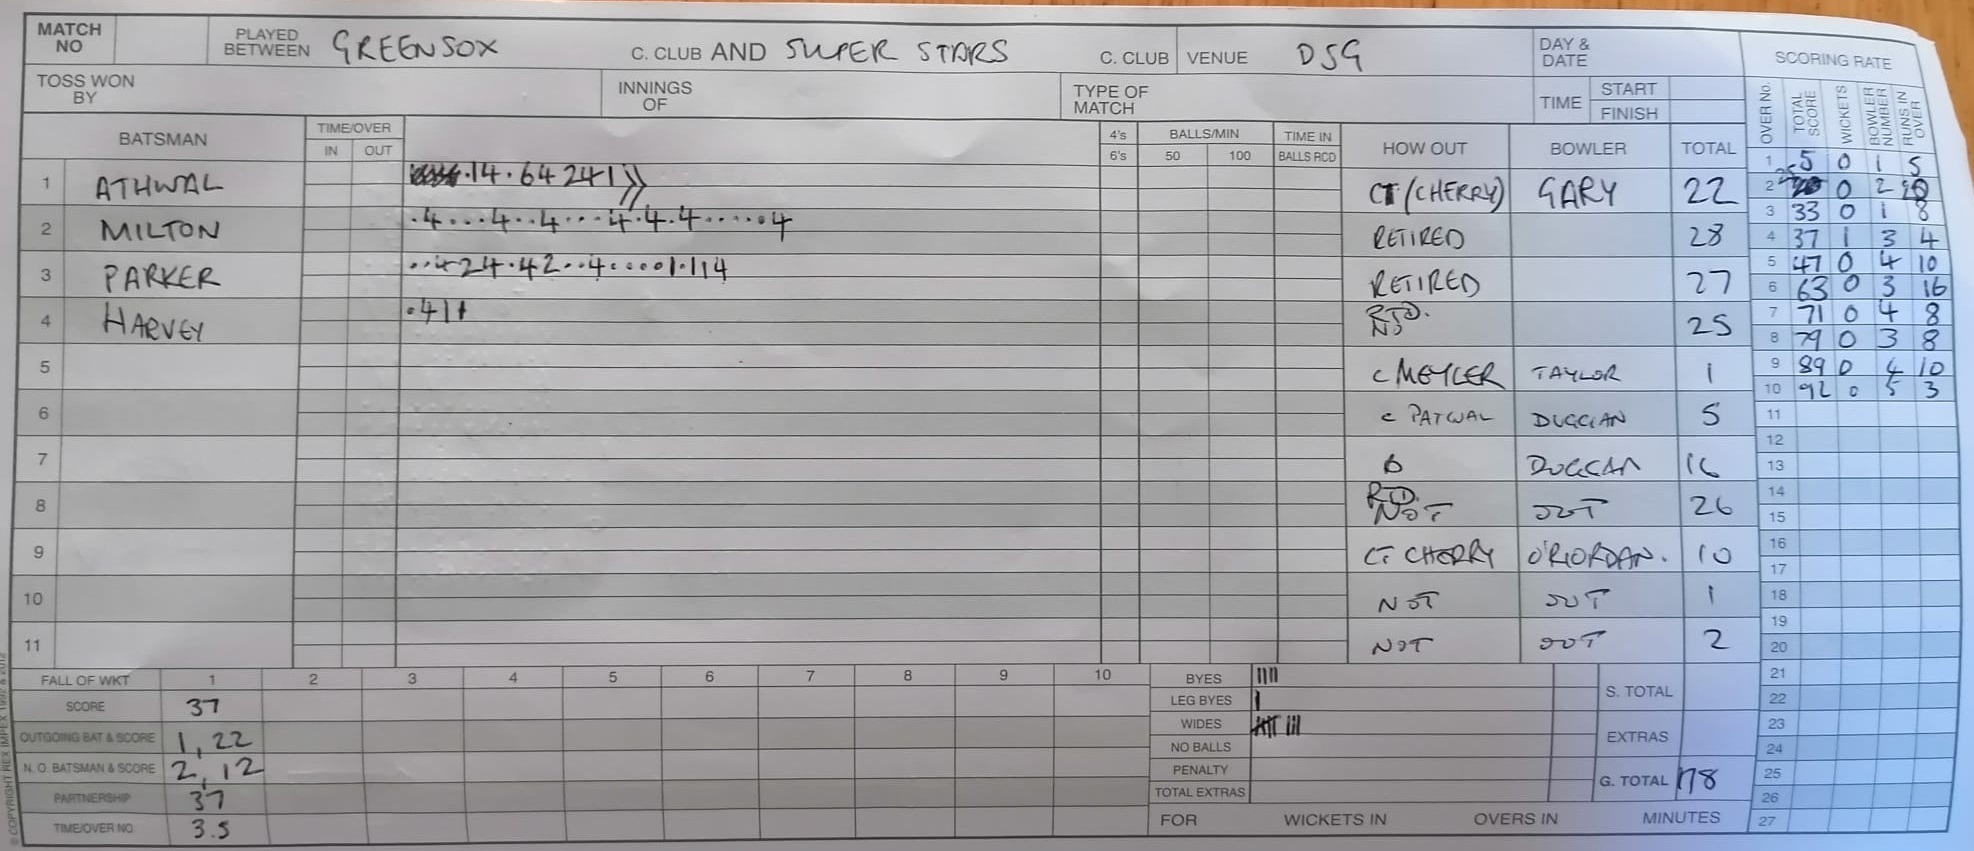 MATCH NO PLAYED BETWEEN GREENSOX C. CLUB AND SUPER STARS C. CLUB VENUE DSG DAY & DATE SCORING RATE
TOSS WON BY INNINGS OF TYPE OF MATCH TIME START FINISH
OVER No. TOTAL SCORE WICKETS BOWLER NUMBER RUNS IN OVER
BATSMAN TIME/OVER IN OUT 4's 6's BALLS/MIN 50 100 TIME IN BALLS RCD HOW OUT BOWLER TOTAL
1 ATHWAL .14.64241 CT (CHERRY) GARY 22
2 MILTON .4...4..4...4.4.4......4 RETIRED 28
3 PARKER ..424.42..4.....1.114 RETIRED 27
4 HARVEY .411 RTD. 25
5 C MEYLER TAYLOR 1
6 C PATWAL DUGGAN 5
7 b DUGGAN 16
8 RTD. NOT OUT 26
9 CT CHERRY O'RIORDAN. 10
10 NOT OUT 1
11 NOT OUT 2
1 5 0 1 5
2 0 2
3 33 0 1 8
4 37 1 3 4
5 47 0 4 10
6 63 0 3 16
7 71 0 4 8
8 79 0 3 8
9 89 0 4 10
10 92 0 5 3
11
12
13
14
15
16
17
18
19
20
21
22
23
24
25
26
27
FALL OF WKT 1 2 3 4 5 6 7 8 9 10
SCORE 37
OUTGOING BAT & SCORE 1, 22
N. O. BATSMAN & SCORE 2, 12
PARTNERSHIP 37
TIME/OVER NO. 3.5
BYES IIII S. TOTAL
LEG BYES I
WIDES EXTRAS
NO BALLS
PENALTY G. TOTAL 178
TOTAL EXTRAS
FOR WICKETS IN OVERS IN MINUTES
© COPYRIGHT REX IMPEX 1992 & 2012